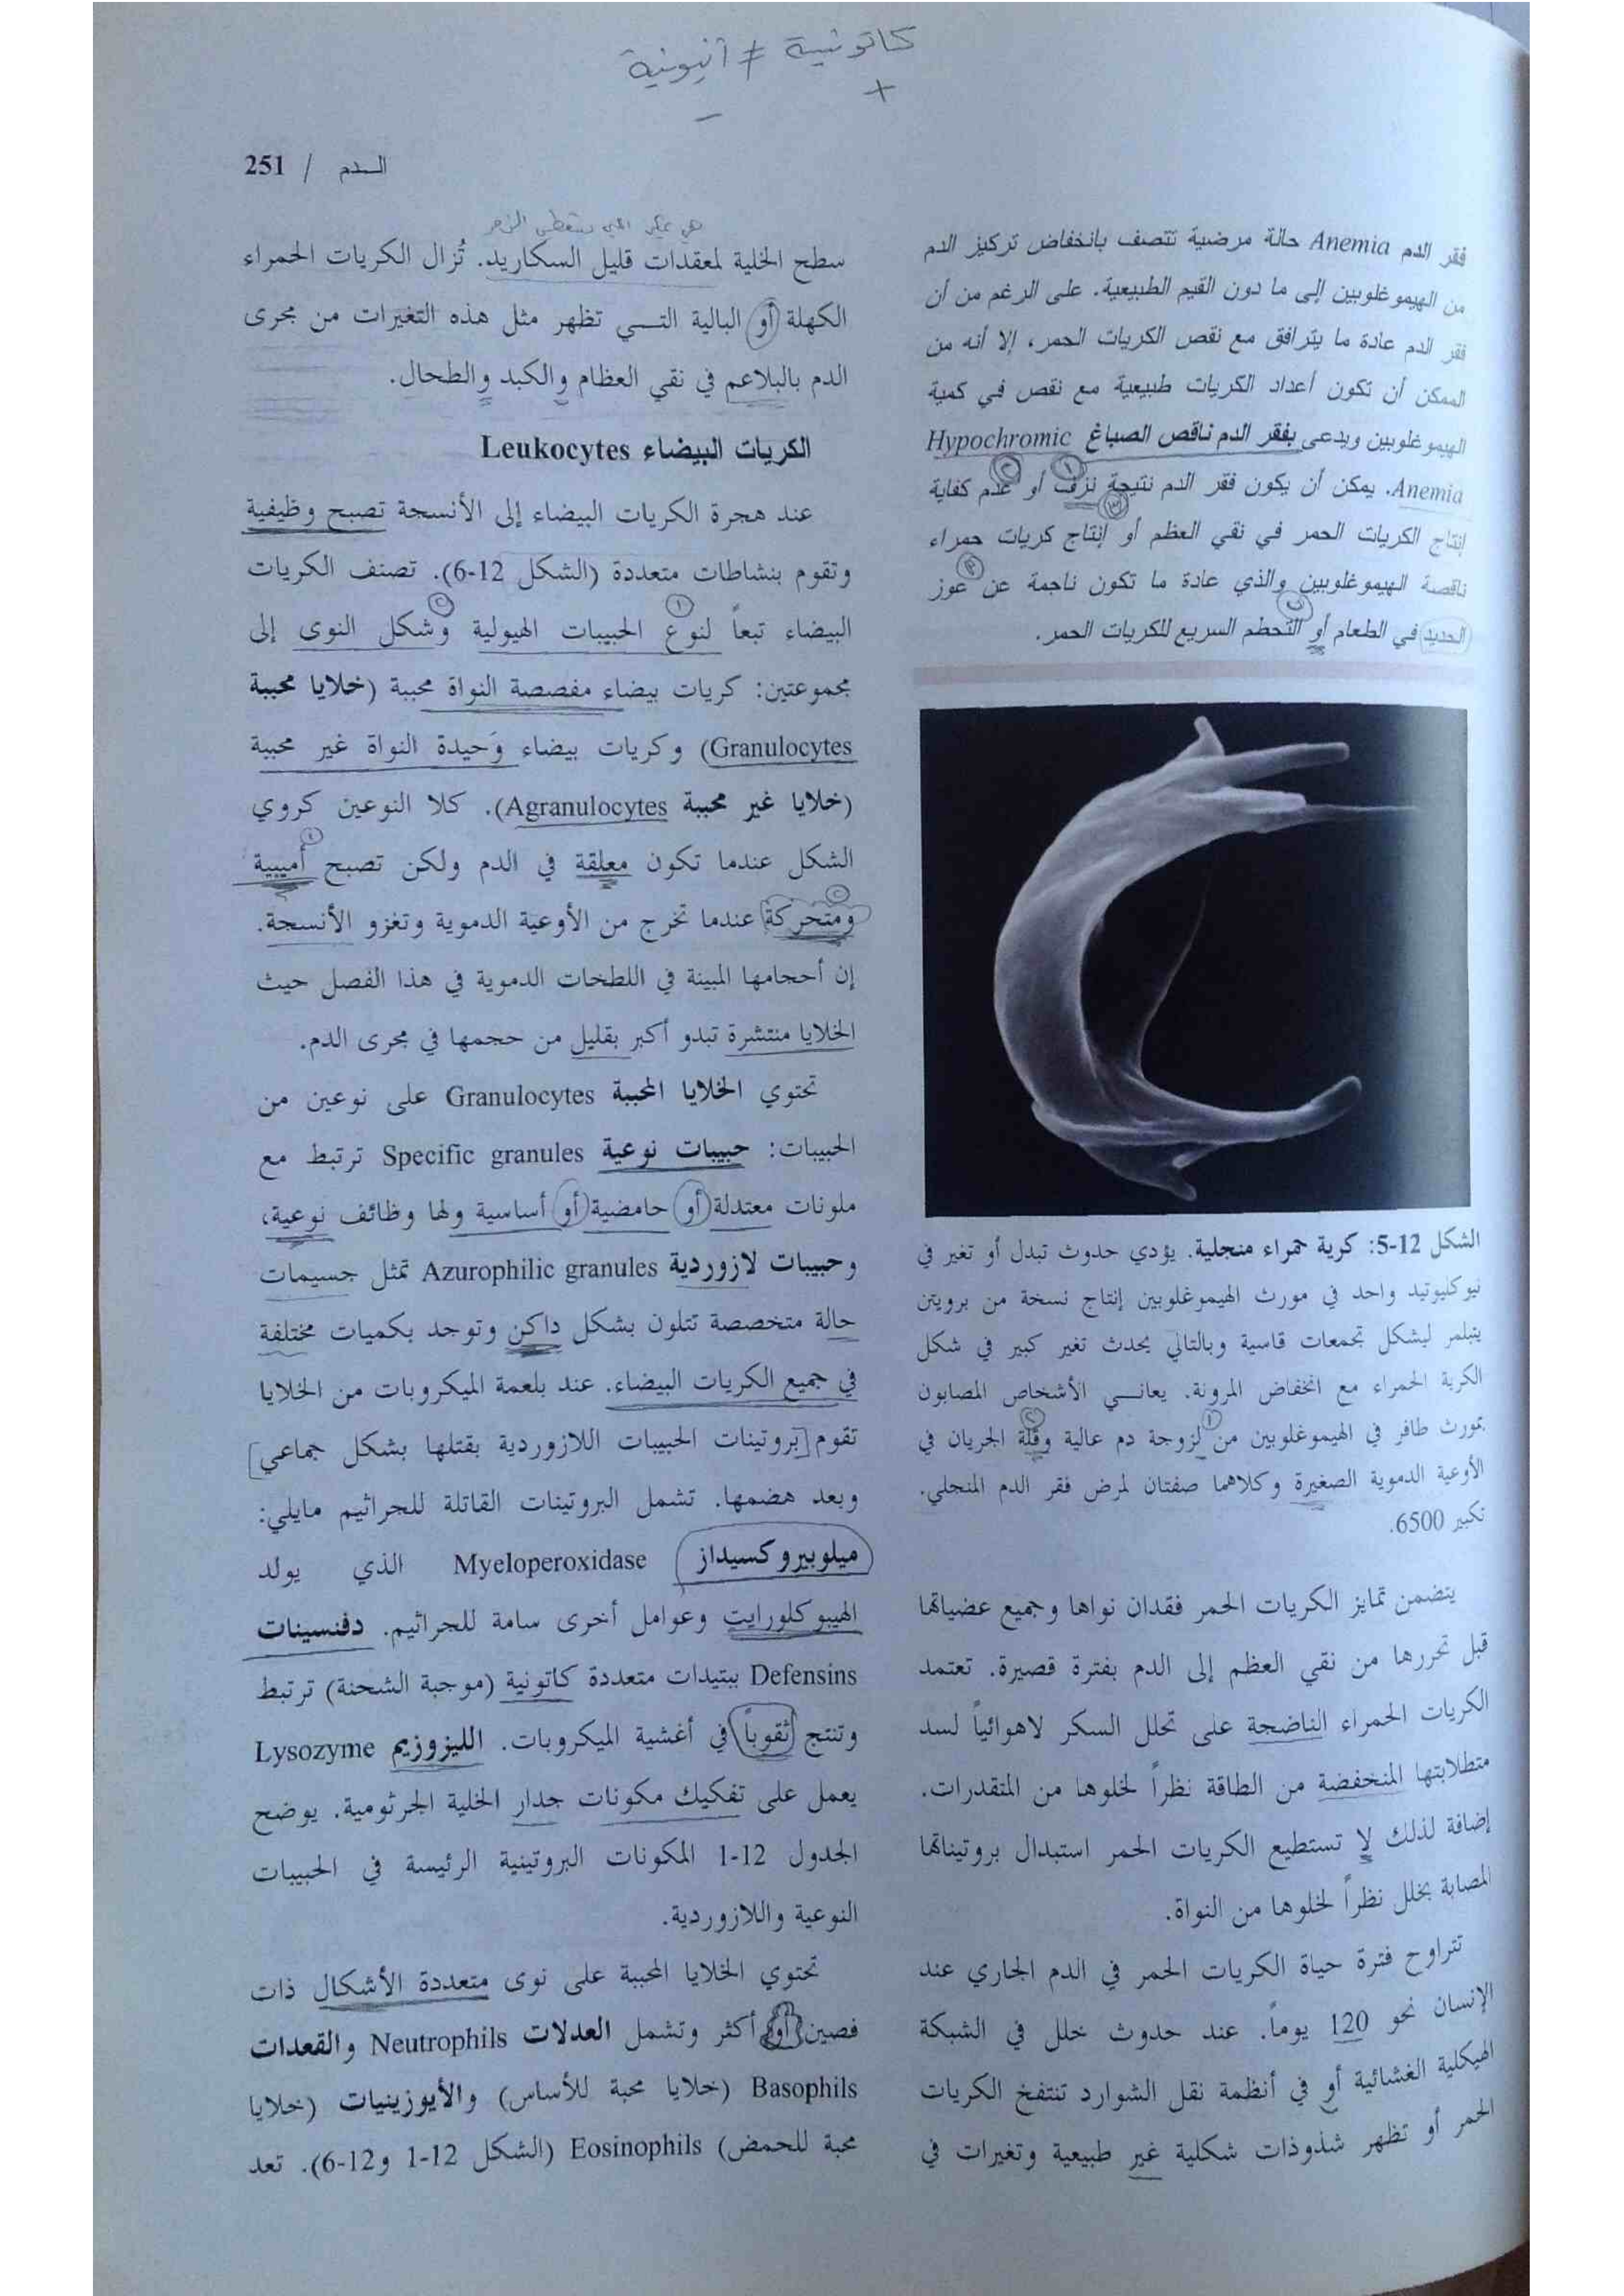 كاتونية ≠ أنيونية
+
−
الـدم / 251
فقر الدم Anemia حالة مرضية تتصف بانخفاض تركيز الدم
من الهيموغلوبين إلى ما دون القيم الطبيعية. على الرغم من أن
فقر الدم عادة ما يترافق مع نقص الكريات الحمر، إلا أنه من
الممكن أن تكون أعداد الكريات طبيعية مع نقص في كمية
الهيموغلوبين ويدعى بفقر الدم ناقص الصباغ Hypochromic
Anemia. يمكن أن يكون فقر الدم نتيجة نزف أو عدم كفاية
إنتاج الكريات الحمر في نقي العظم أو إنتاج كريات حمراء
ناقصة الهيموغلوبين والذي عادة ما تكون ناجمة عن عوز
الحديد في الطعام أو التحطم السريع للكريات الحمر.
الشكل 12-5: كرية حمراء منجلية. يؤدي حدوث تبدل أو تغير في
نيوكليوتيد واحد في مورث الهيموغلوبين إنتاج نسخة من برويتن
يتبلمر ليشكل تجمعات قاسية وبالتالي يحدث تغير كبير في شكل
الكرية الحمراء مع انخفاض المرونة. يعانـي الأشخاص المصابون
بمورث طافر في الهيموغلوبين من لزوجة دم عالية وقلة الجريان في
الأوعية الدموية الصغيرة وكلاهما صفتان لمرض فقر الدم المنجلي.
تكبير 6500.
يتضمن تمايز الكريات الحمر فقدان نواها وجميع عضياتها
قبل تحررها من نقي العظم إلى الدم بفترة قصيرة. تعتمد
الكريات الحمراء الناضجة على تحلل السكر لاهوائياً لسد
متطلابتها المنخفضة من الطاقة نظراً لخلوها من المتقدرات.
إضافة لذلك لا تستطيع الكريات الحمر استبدال بروتيناتها
المصابة بخلل نظراً لخلوها من النواة.
تتراوح فترة حياة الكريات الحمر في الدم الجاري عند
الإنسان نحو 120 يوماً. عند حدوث خلل في الشبكة
الهيكلية الغشائية أو في أنظمة نقل الشوارد تنتفخ الكريات
الحمر أو تظهر شذوذات شكلية غير طبيعية وتغيرات في
سطح الخلية لمعقدات قليل السكاريد. تُزال الكريات الحمراء
الكهلة أو البالية التـي تظهر مثل هذه التغيرات من مجرى
الدم بالبلاعم في نقي العظام والكبد والطحال.
الكريات البيضاء Leukocytes
عند هجرة الكريات البيضاء إلى الأنسجة تصبح وظيفية
وتقوم بنشاطات متعددة (الشكل 12-6). تصنف الكريات
البيضاء تبعاً لنوع الحبيبات الهيولية وشكل النوى إلى
مجموعتين: كريات بيضاء مفصصة النواة محببة (خلايا محببة
Granulocytes) وكريات بيضاء وَحيدة النواة غير محببة
(خلايا غير محببة Agranulocytes). كلا النوعين كروي
الشكل عندما تكون معلقة في الدم ولكن تصبح أميبية
ومتحركة عندما تخرج من الأوعية الدموية وتغزو الأنسجة.
إن أحجامها المبينة في اللطخات الدموية في هذا الفصل حيث
الخلايا منتشرة تبدو أكبر بقليل من حجمها في مجرى الدم.
تحتوي الخلايا المحببة Granulocytes على نوعين من
الحبيبات: حبيبات نوعية Specific granules ترتبط مع
ملونات معتدلة أو حامضية أو أساسية ولها وظائف نوعية،
وحبيبات لازوردية Azurophilic granules تمثل جسيمات
حالة متخصصة تتلون بشكل داكن وتوجد بكميات مختلفة
في جميع الكريات البيضاء. عند بلعمة الميكروبات من الخلايا
تقوم [بروتينات الحبيبات اللازوردية بقتلها بشكل جماعي]
وبعد هضمها. تشمل البروتينات القاتلة للجراثيم مايلي:
ميلوبيروكسيداز Myeloperoxidase الذي يولد
الهيبوكلورايت وعوامل أخرى سامة للجراثيم. دفنسينات
Defensins ببتيدات متعددة كاتونية (موجبة الشحنة) ترتبط
وتنتج ثقوباً في أغشية الميكروبات. الليزوزيم Lysozyme
يعمل على تفكيك مكونات جدار الخلية الجرثومية. يوضح
الجدول 12-1 المكونات البروتينية الرئيسة في الحبيبات
النوعية واللازوردية.
تحتوي الخلايا المحببة على نوى متعددة الأشكال ذات
فصين أو أكثر وتشمل العدلات Neutrophils والقعدات
Basophils (خلايا محبة للأساس) والأيوزينيات (خلايا
محبة للحمض) Eosinophils (الشكل 12-1 و12-6). تعد